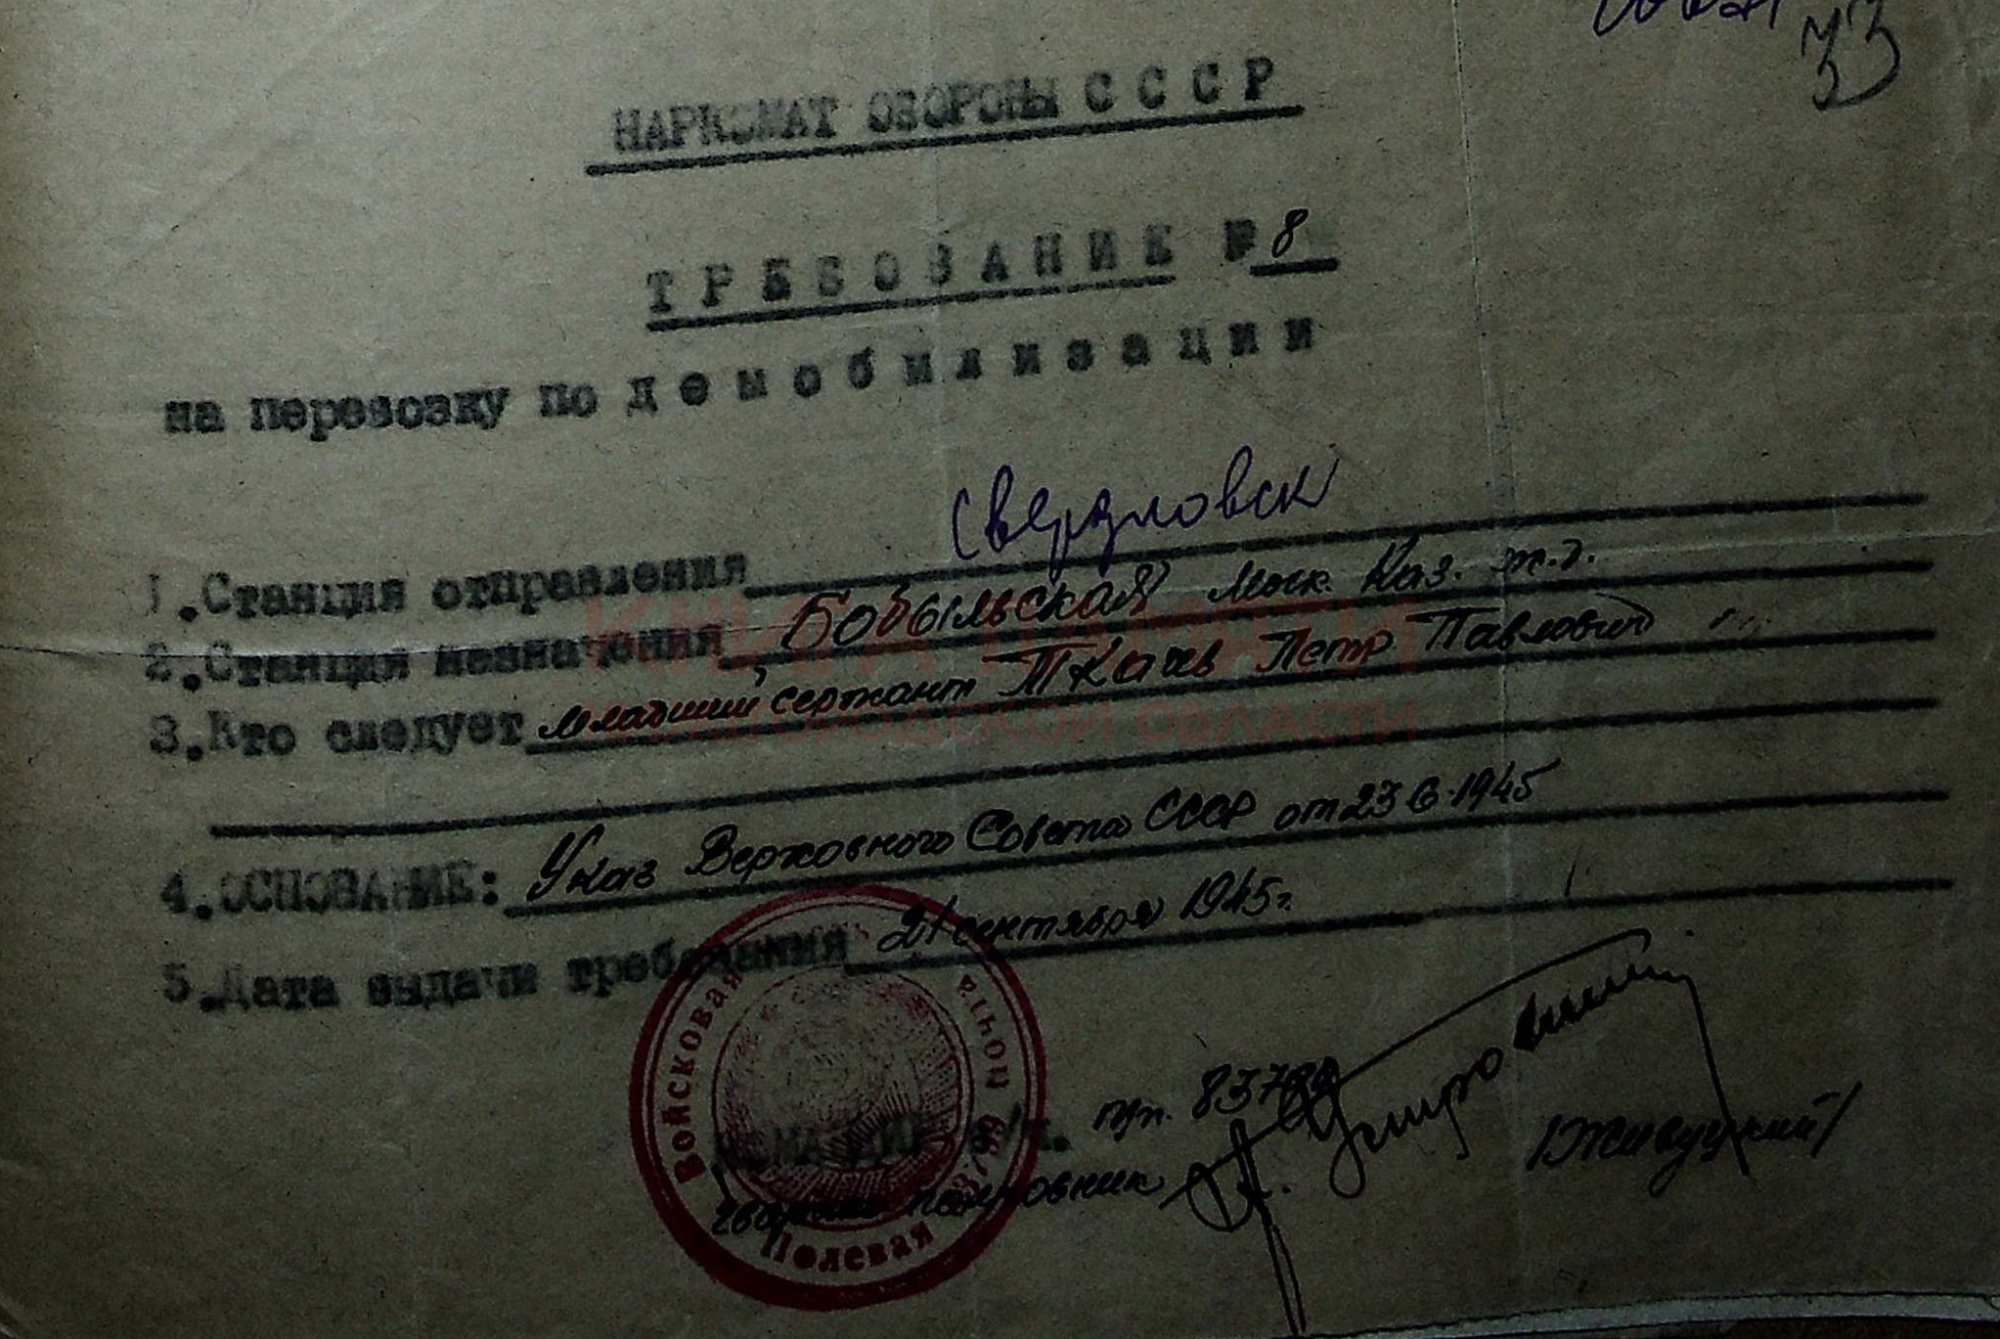 33
НАРКОМАТ ОБОРОНЫ СССР
ТРЕБОВАНИЕ № 8
на перевозку по демобилизации
1. Станция отправления Свердловск
2. Станция назначения Бобыльская Моск. Каз. ж.д.
3. Кто следует младший сержант Ткачев Петр Павлович
КНИГА ПАМЯТИ
ОБЛАСТИ
4. ОСНОВАНИЕ: Указ Верховного Совета СССР от 23 6.1945
5. Дата выдачи требования 21 сентября 1945г.
Войсковая
почта
Полевая
в/ч. пп.
гвардии полковник